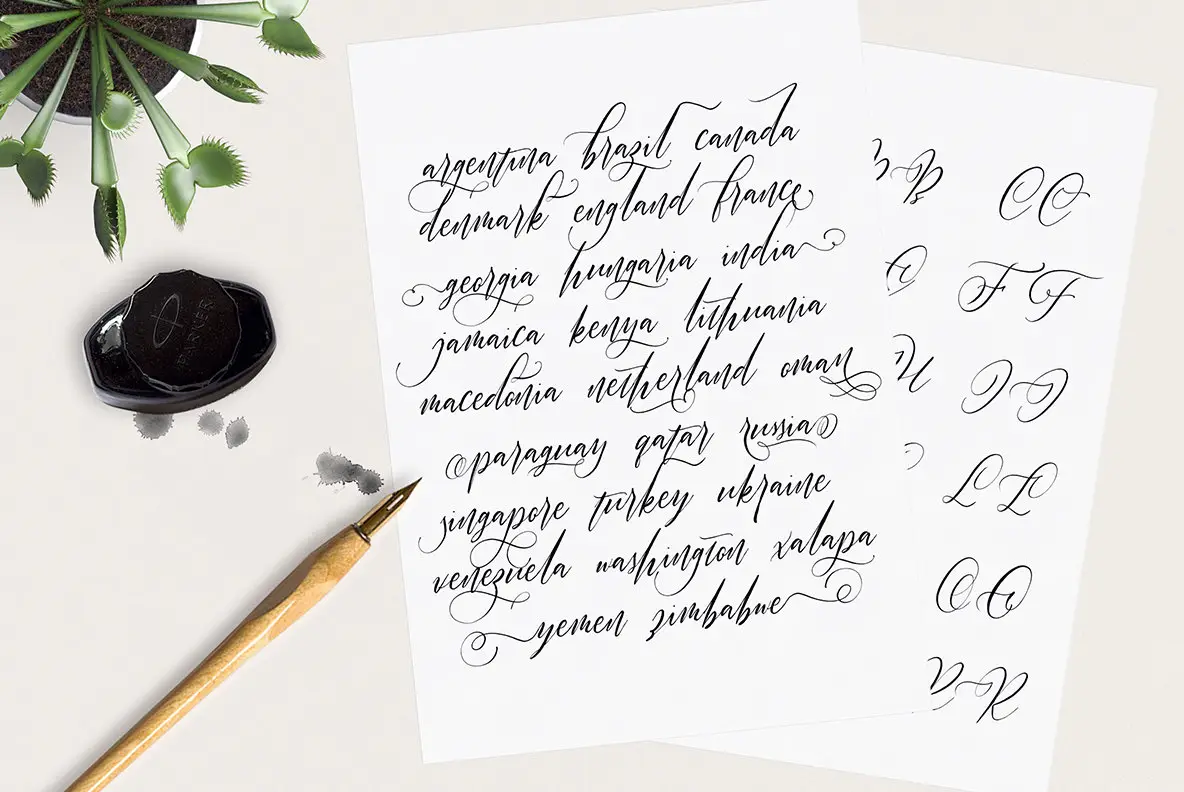 argentina brazil canada
denmark england france
georgia hungaria india
jamaica kenya lithuania
macedonia netherland oman
paraguay qatar russia
singapore turkey ukraine
venezuela washington xalapa
yemen zimbabwe
B
C C
F F
I I
L L
O O
R
PARKER